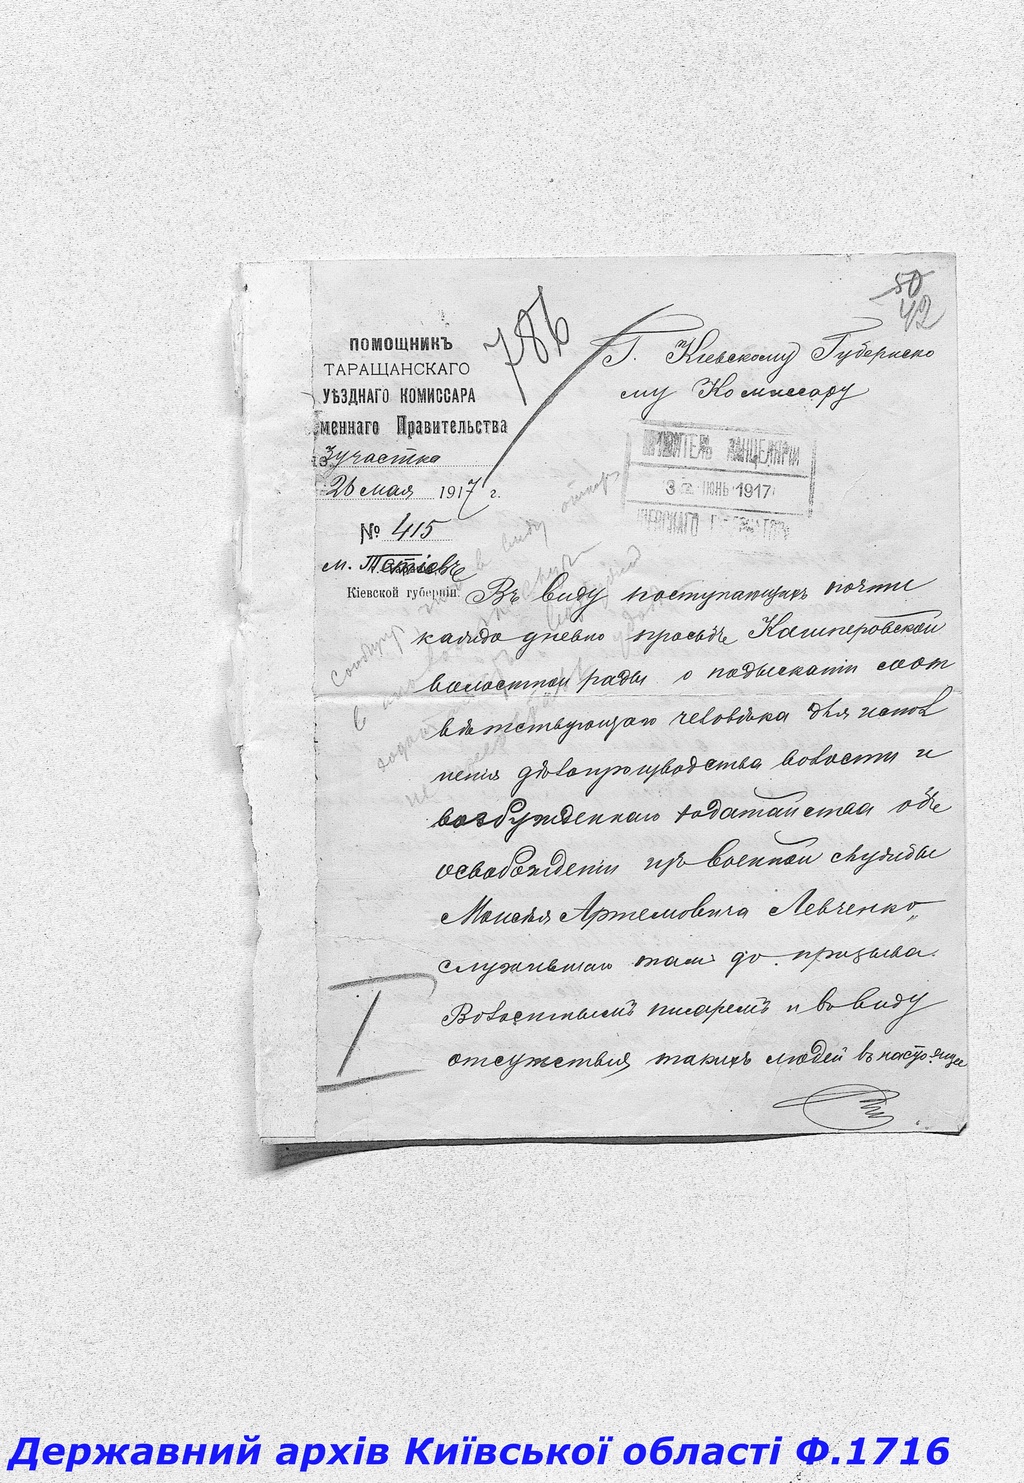 50
42
786
ПОМОЩНИКЪ
ТАРАЩАНСКАГО
УѢЗДНАГО КОМИССАРА
меннаго Правительства
3 участка
26 мая 1917 г.
№ 415
м. Тетіевъ
Кіевской губерніи.
Г. Кіевскому Губернско
му Комиссару
ПРАВИТЕЛЬ КАНЦЕЛЯРІИ
3 ІЮНЬ 1917
КІЕВСКАГО ГУБЕРНАТОРА
Въ виду поступающихъ почти
каждо дневно просьбъ Кашперовской
волостной рады о подысканіи соот
вѣтствующаго человѣка для испол
ненія дѣлопроизводства волости и
возбужденнаго ходатайства объ
освобожденіи изъ военной службы
Моисѣя Артемовича Левченко,
служившаго тамъ до призыва
Волостнымъ писаремъ и въ виду
отсутствія такихъ людей въ настоящее
I
Державний архів Київської області Ф.1716